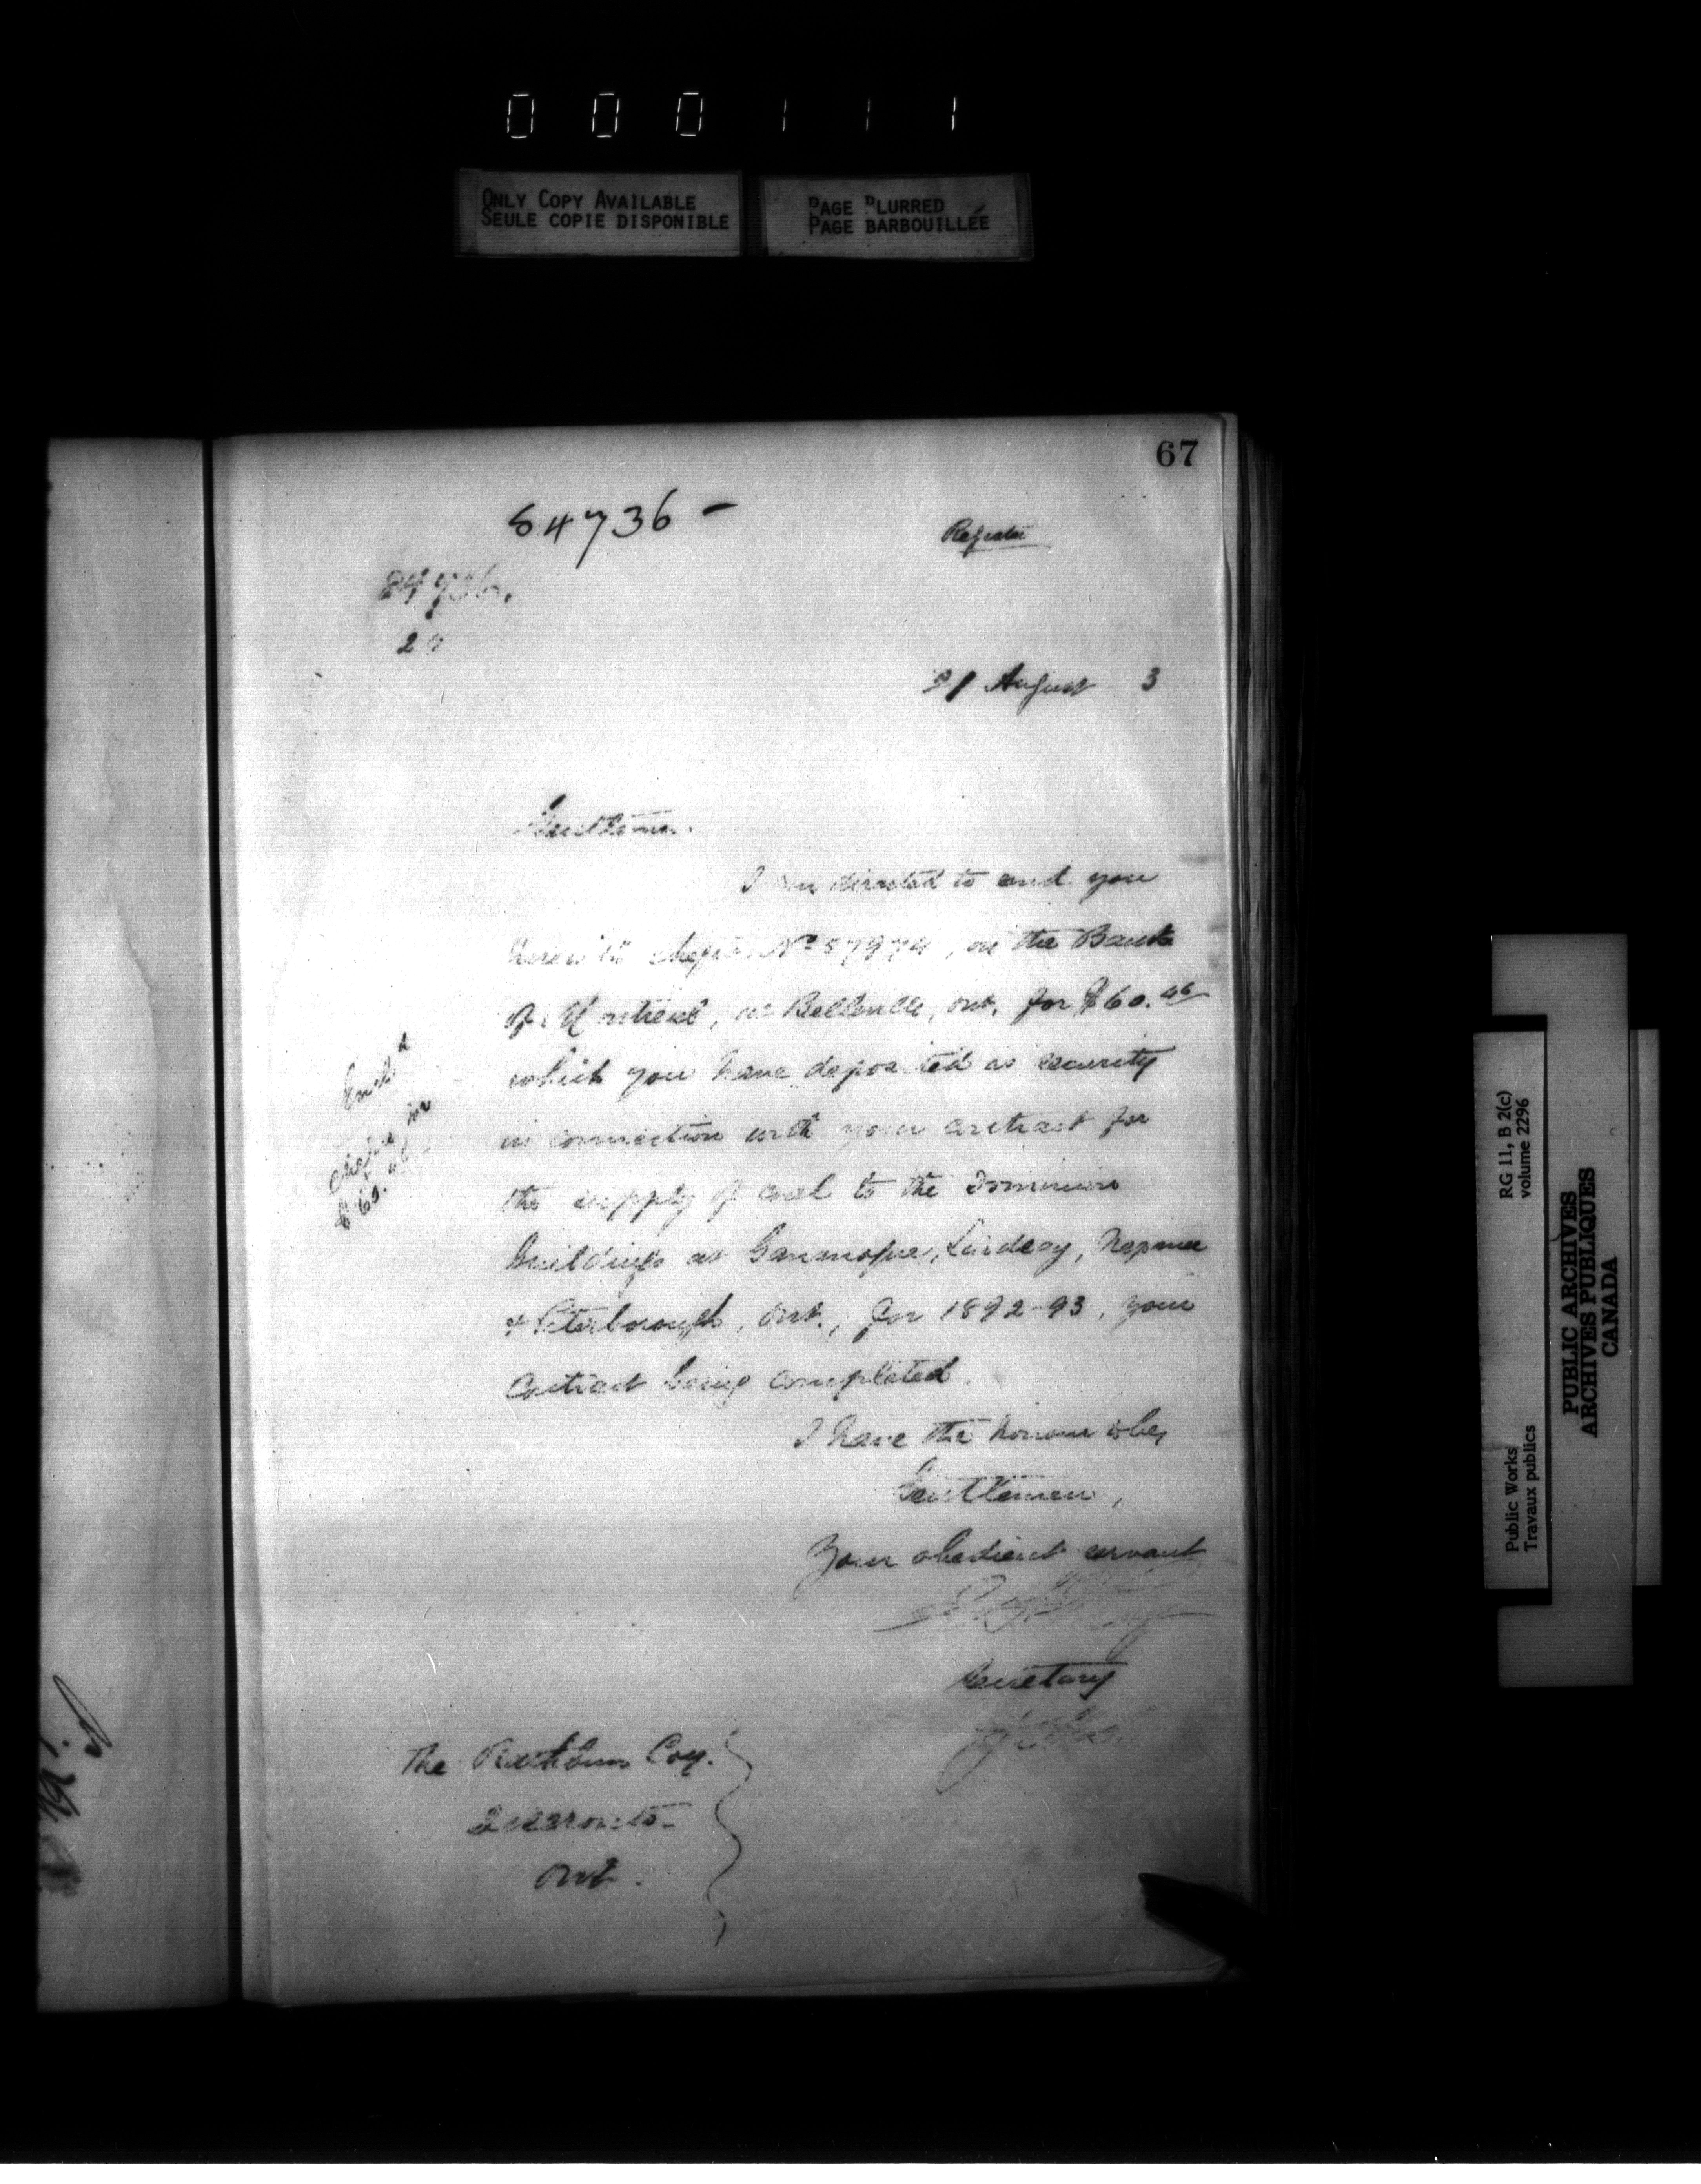 000111
ONLY COPY AVAILABLE
SEULE COPIE DISPONIBLE
PAGE BLURRED
PAGE BARBOUILLÉE
67
84736 -
84736.
31 August 3
Gentlemen.
I am directed to send you
herewith cheque No 57974, on the Bank
of Montreal, at Belleville, Ont. for $60.46
which you have deposited as security
in connection with your contract for
the supply of coal to the Dominion
buildings at Gananoque, Lindsay, Napanee
& Peterborough, Ont., for 1892-93, your
contract being completed.
I have the honour to be,
Gentlemen,
Your obedient servant
Secretary
The Rathbun Coy.
Deseronto
Ont.
cheque for
$60.46
RG 11, B 2(c)
volume 2296
Public Works
Travaux publics
PUBLIC ARCHIVES
ARCHIVES PUBLIQUES
CANADA